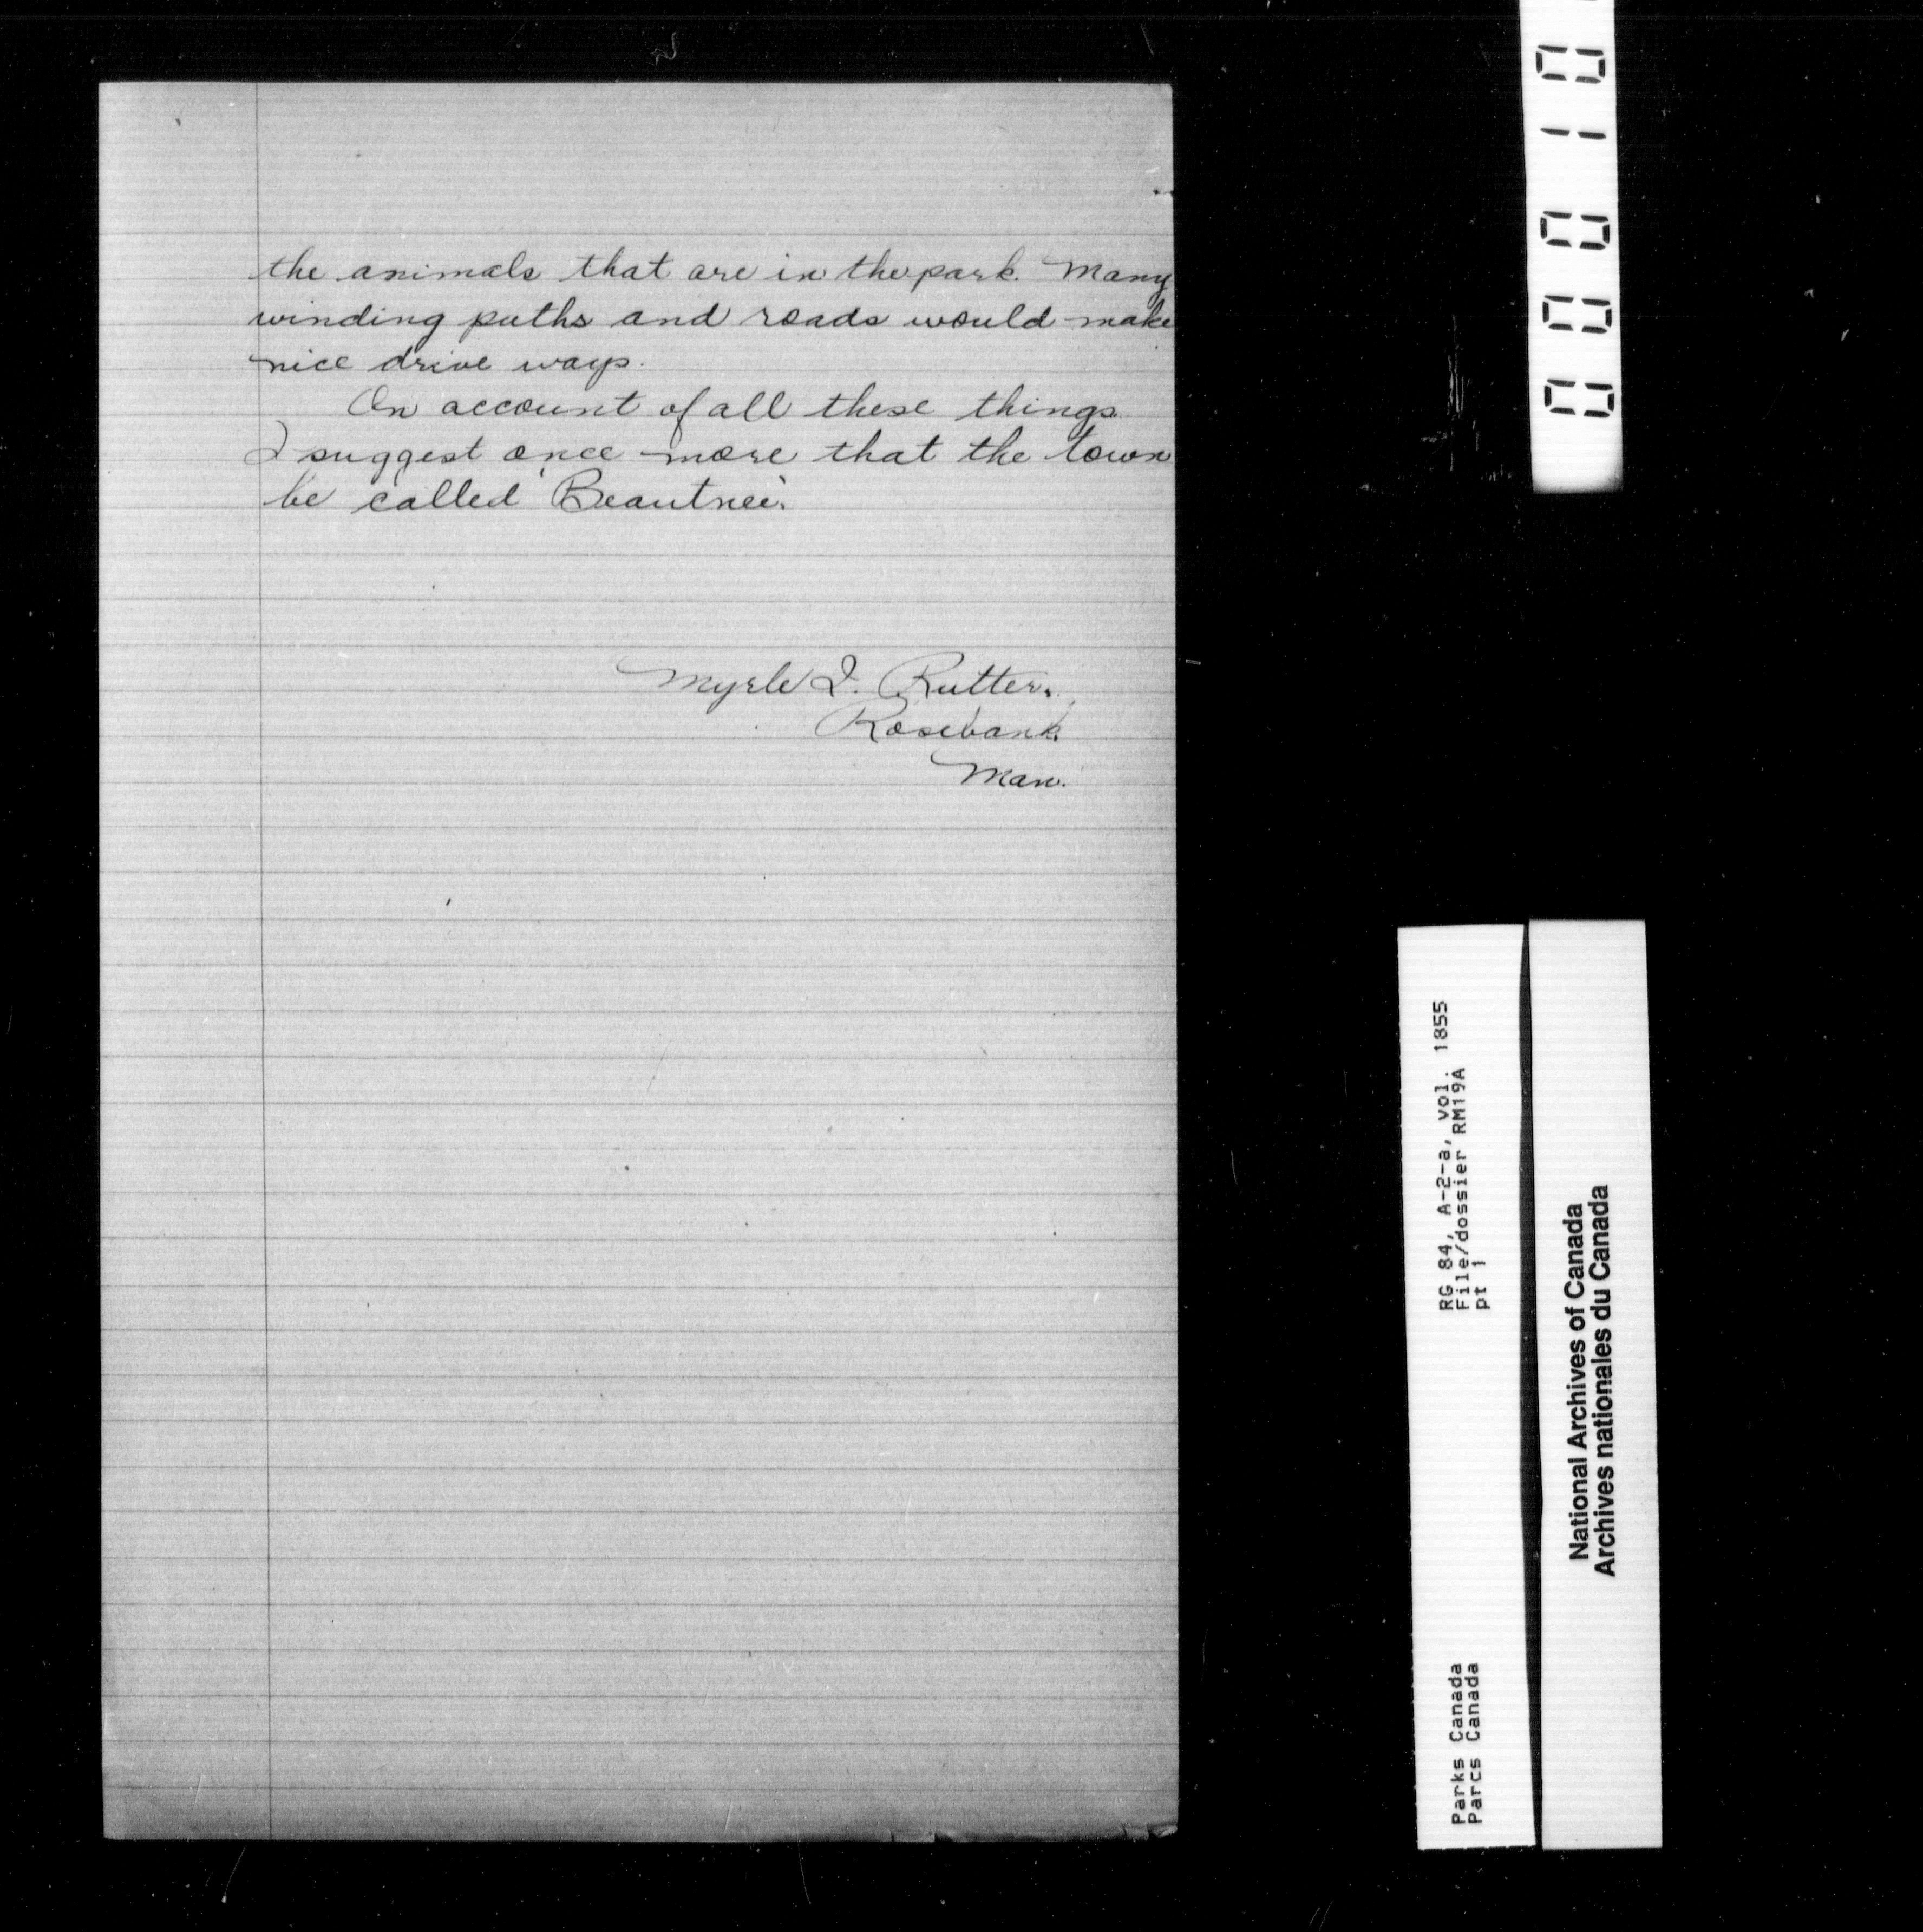 the animals that are in the park. Many
winding paths and roads would make
nice drive ways.
On account of all these things
I suggest once more that the town
be called 'Beautnei'.
Myrle I. Rutter.
Rosebank
Man.
00010
RG 84, A-2-a, vol. 1855
File/dossier RM19A
pt 1
Parks Canada
Parcs Canada
National Archives of Canada
Archives nationales du Canada